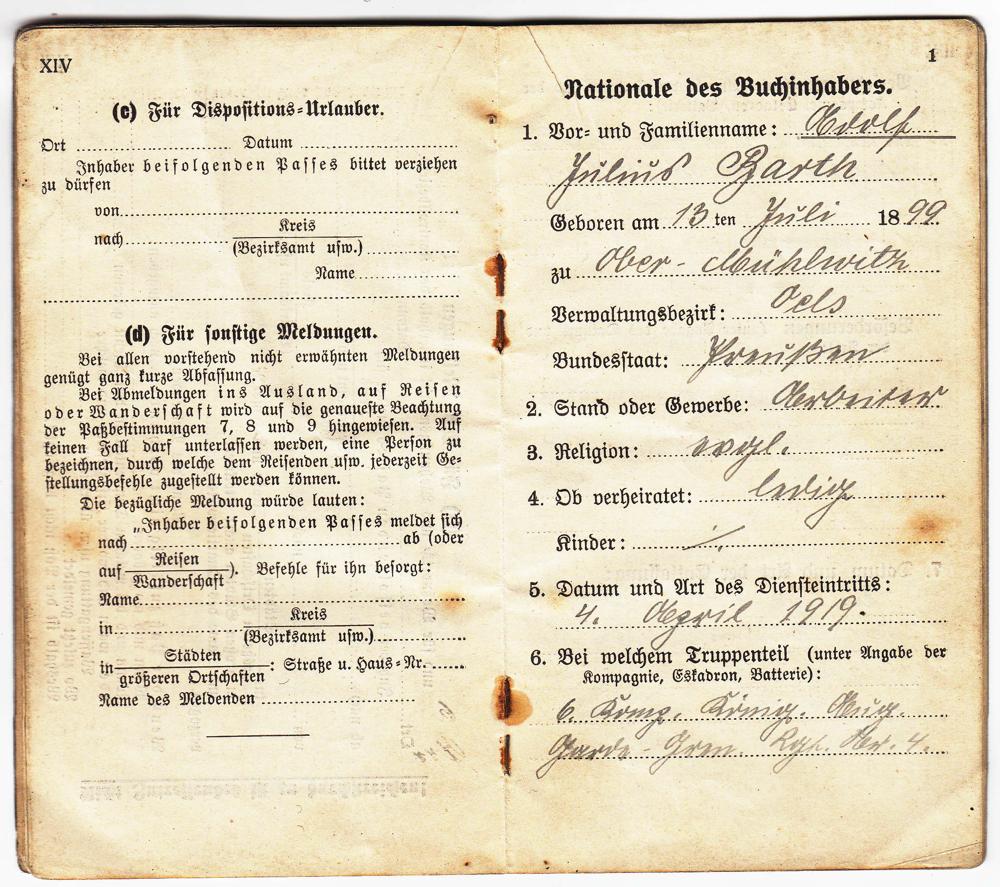 XIV
(c) Für Dispositions-Urlauber.
Ort ........ Datum ........
Inhaber beifolgenden Passes bittet verziehen
zu dürfen
von........
nach........ Kreis
(Bezirksamt usw.) ........
Name ........
(d) Für sonstige Meldungen.
Bei allen vorstehend nicht erwähnten Meldungen
genügt ganz kurze Abfassung.
Bei Abmeldungen ins Ausland, auf Reisen
oder Wanderschaft wird auf die genaueste Beachtung
der Paßbestimmungen 7, 8 und 9 hingewiesen. Auf
keinen Fall darf unterlassen werden, eine Person zu
bezeichnen, durch welche dem Reisenden usw. jederzeit Ge-
stellungsbefehle zugestellt werden können.
Die bezügliche Meldung würde lauten:
„Inhaber beifolgenden Passes meldet sich
nach ........ ab (oder
auf Reisen
Wanderschaft). Befehle für ihn besorgt:
Name........
in........ Kreis
(Bezirksamt usw.)........
in Städten
größeren Ortschaften: Straße u. Haus-Nr. ......
Name des Meldenden ........
1
Nationale des Buchinhabers.
1. Vor- und Familienname: Adolf
Julius Barth
Geboren am 13ten Juli 1899
zu Ober-Mühlwitz
Verwaltungsbezirk: Oels
Bundesstaat: Preußen
2. Stand oder Gewerbe: Arbeiter
3. Religion: evgl.
4. Ob verheiratet: ledig
Kinder: ./.
5. Datum und Art des Diensteintritts:
4. April 1919.
6. Bei welchem Truppenteil (unter Angabe der
Kompagnie, Eskadron, Batterie):
6. Komp. König. Aug.
Garde-Gren. Rgt. Nr. 4.